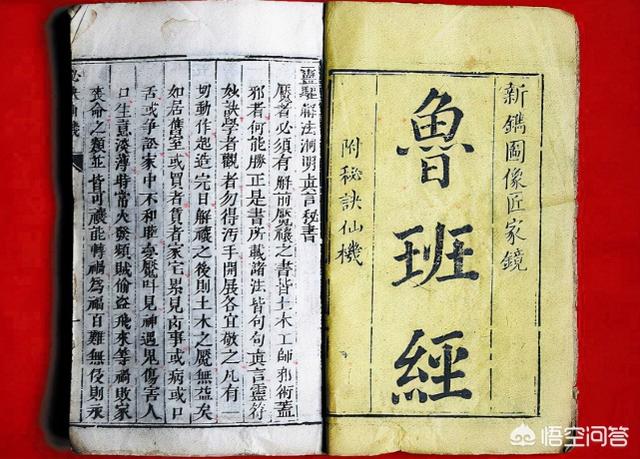 新鐫圖像匠家鏡
魯班經
附秘訣仙機
靈驅解法洞明真言秘書
魘者必須有解前魘禳之書皆土木工師邪術蓋
邪者何能勝正是書所載諸法皆句句真言靈符
妙訣學者觀者勿得污手開展各宜敬之凡有一
切動作起造完日解禳之後則土木之魘無益矣
如居舊室或買者賃者家宅累見凶事或病或口
舌或爭訟家中不和睡夢魘叫見神遇鬼傷害人
口生意淡薄時常火發頻賊偷盜飛來等禍敗家
喪命之類並皆可禳能轉禍為福百難無侵則永
悟空问答